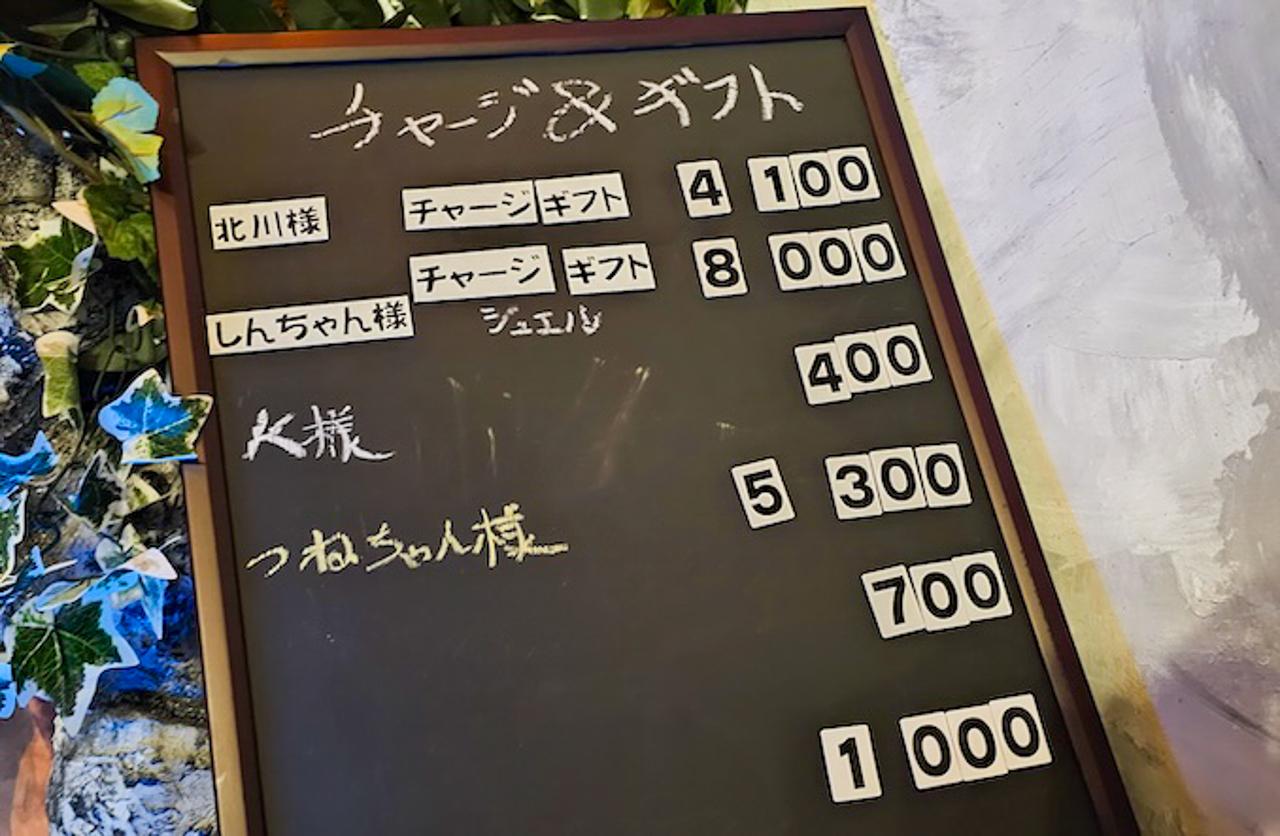 チャージ&ギフト
北川様 チャージ ギフト 4 100
チャージ ギフト 8 000
しんちゃん様 ジュエル
400
K様
5 300
つねちゃん様
700
1 000